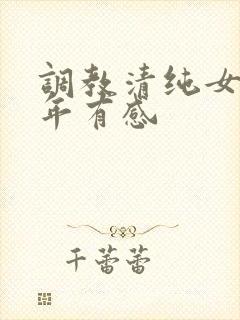 調教清纯女
年有感
千蕾蕾